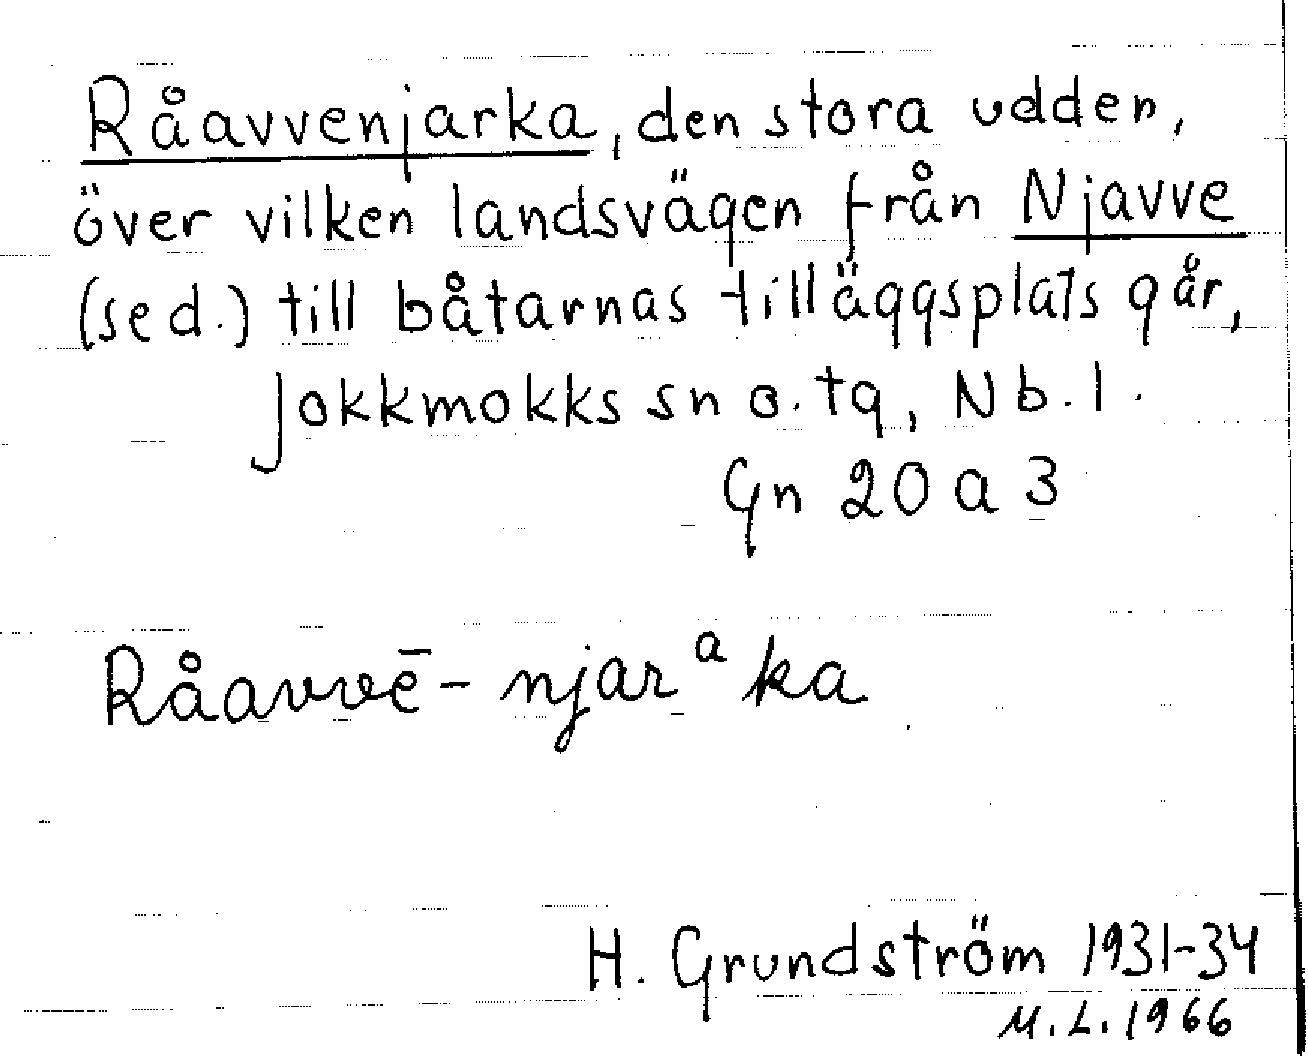 Råavvenjarka, den stora udden,
över vilken landsvägen från Njavve
(se d.) till båtarnas tilläggsplats går,
Jokkmokks sn o. tg, Nb. l.
Gn 20 a 3
Råavvē- njarᵃka
H. Grundström 1931-34
M.L. 1966